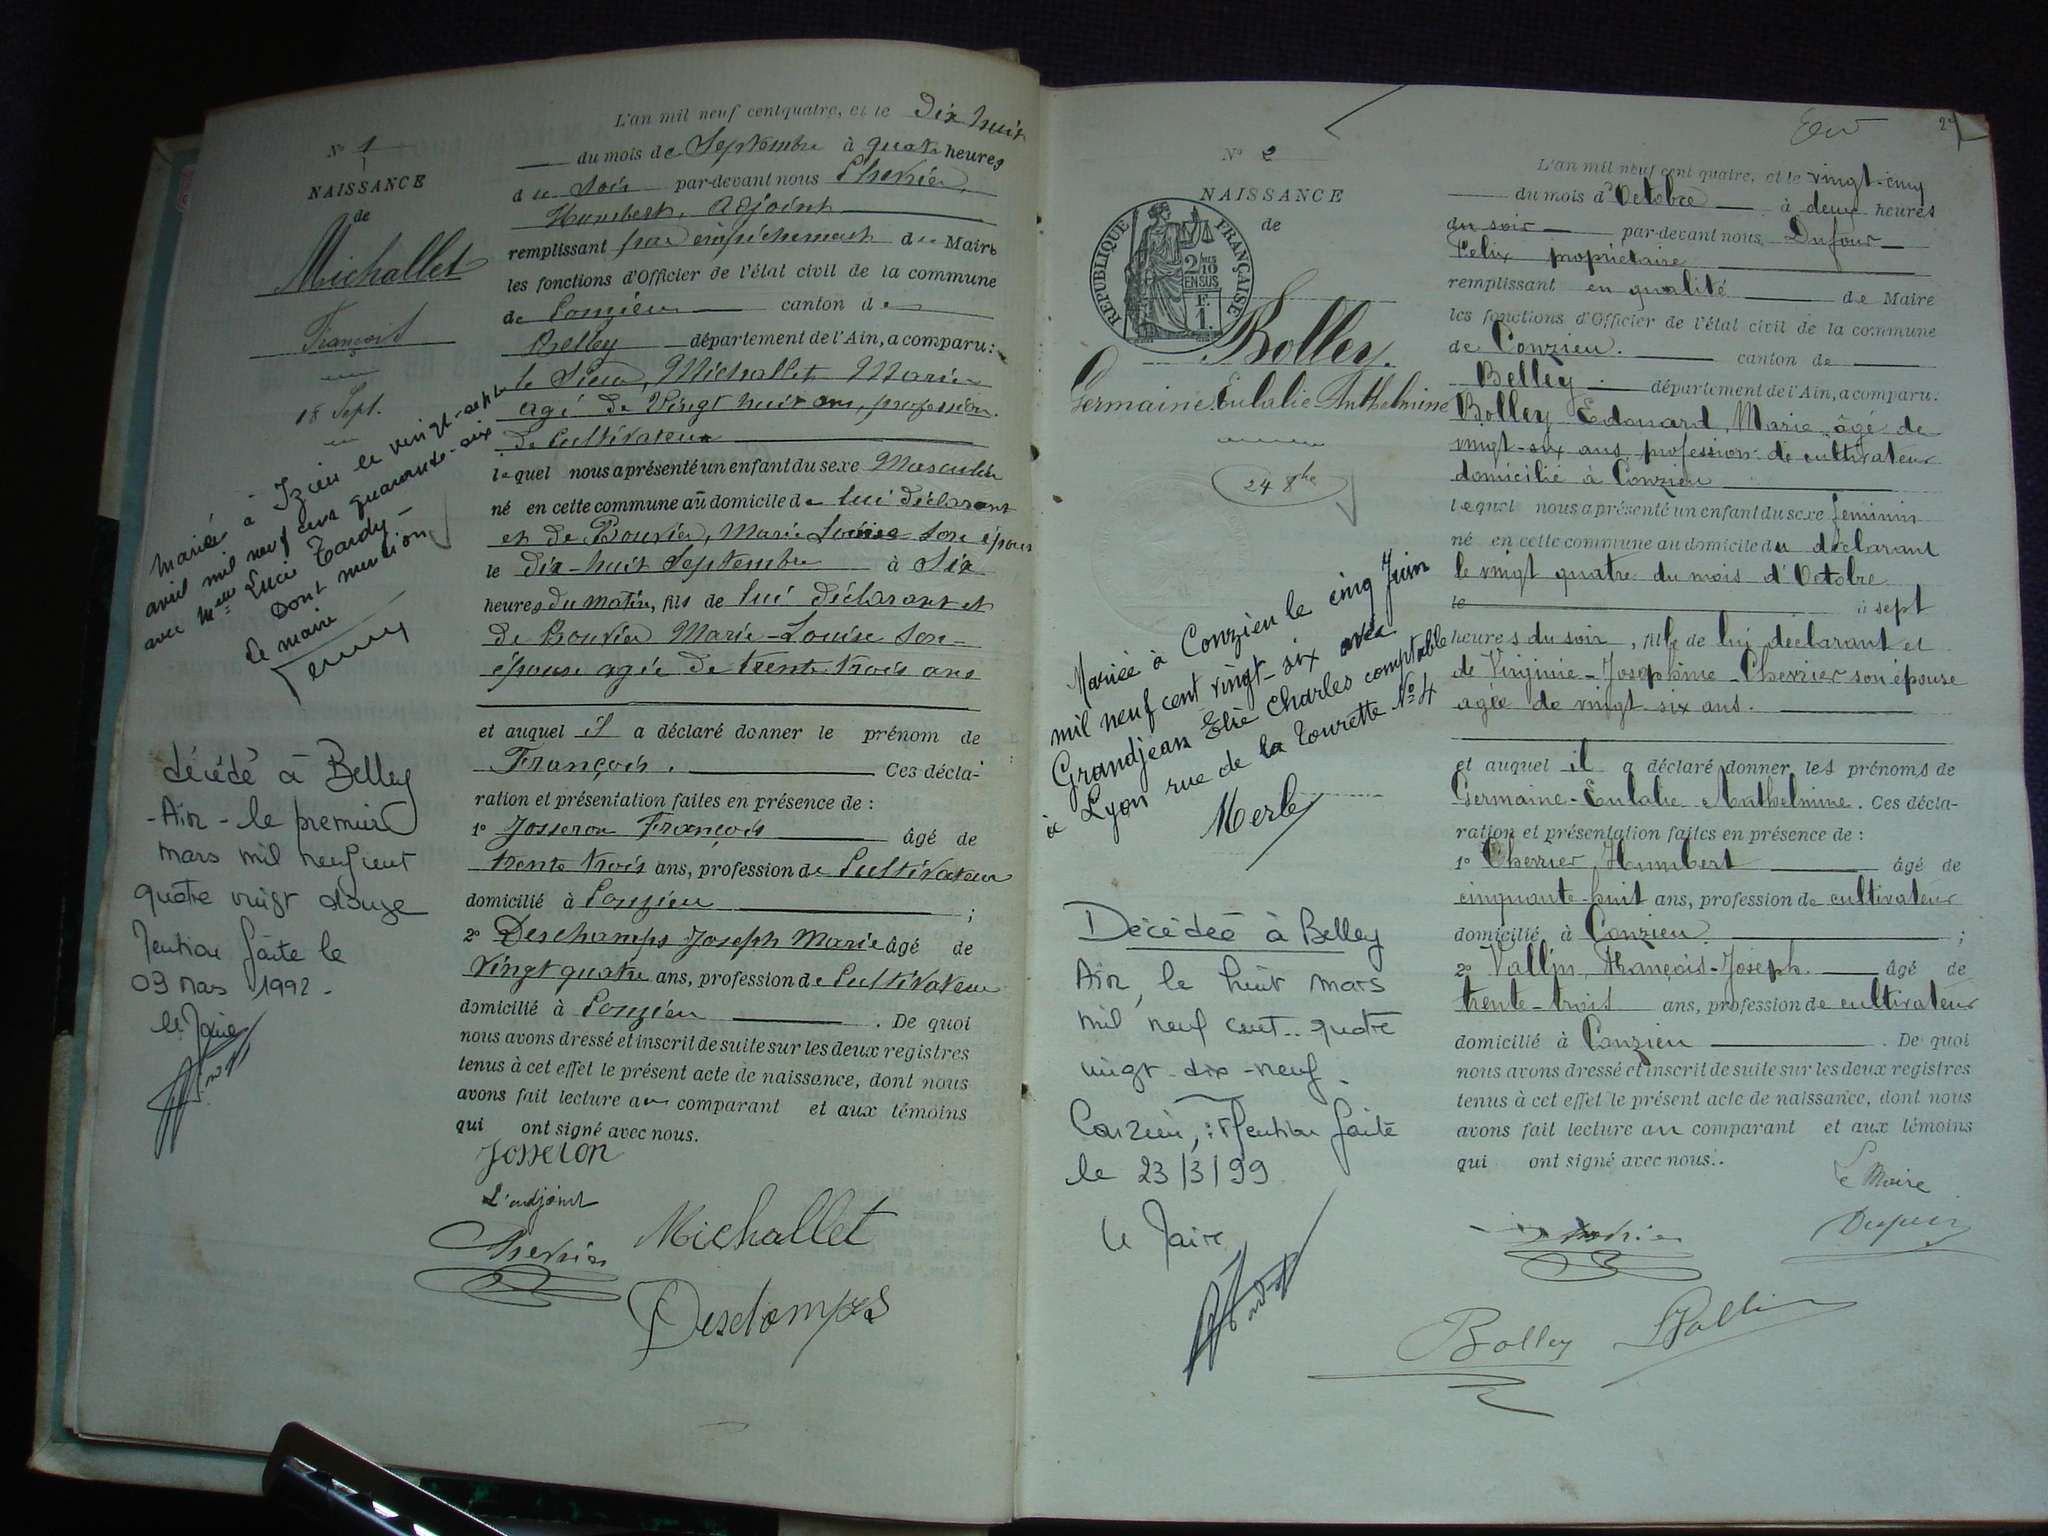 L'an mil neuf cent quatre, et le Dix huit
N° 1
du mois de Septembre à quatre heures
NAISSANCE
du Soir par-devant nous Cherier
de
Humbert, adjoint
Michallet
remplissant par empêchement du Maire
les fonctions d'Officier de l'état civil de la commune
François
de Conzieu canton de
18 Sept.
Belley département de l'Ain, a comparu:
le Sieur, Michallet Marie
agé de Vingt huit ans, profession
de Cultivateur
lequel nous a présenté un enfant du sexe Masculin
né en cette commune au domicile de lui déclarant
et de Bouvier, Marie Louise son épouse
le dix-huit Septembre à Six
heures du matin, fils de lui déclarant et
de Bouvier Marie-Louise son
épouse agée de trente trois ans
et auquel il a déclaré donner le prénom de
François. Ces décla-
ration et présentation faites en présence de :
1° Josseron François âgé de
trente trois ans, profession de Cultivateur
domicilié à Conzieu ;
2° Deschamps Joseph Marie âgé de
Vingt quatre ans, profession de Cultivateur
domicilié à Conzieu . De quoi
nous avons dressé et inscrit de suite sur les deux registres
tenus à cet effet le présent acte de naissance, dont nous
avons fait lecture au comparant et aux témoins
qui ont signé avec nous.
Josseron
L'adjoint
Michallet
Deschamps
Marié à Izieu le vingt-sept
avril mil neuf cent quarante-six
avec Melle Lucie Tardy -
Dont mention
Le maire
décédé à Belley
- Ain - le premier
mars mil neuf cent
quatre vingt douze
Mention faite le
03 mars 1992 -
le Maire
2
N° 2
NAISSANCE
de
REPUBLIQUE FRANÇAISE
2/10
EN SUS
F.
1.
Bolley.
Germaine Eulalie Anthelmine
24 8bre
L'an mil neuf cent quatre, et le vingt-cinq
du mois d'Octobre à deux heures
du soir par-devant nous Dufour
Felix propriétaire
remplissant en qualité de Maire
les fonctions d'Officier de l'état civil de la commune
de Conzieu. canton de
Belley. département de l'Ain, a comparu:
Bolley Edouard, Marie âgé de
vingt-six ans, profession de cultivateur
domicilié à Conzieu
lequel nous a présenté un enfant du sexe féminin
né en cette commune au domicile du déclarant
le vingt quatre du mois d'Octobre
le à sept
heures du soir, fille de lui déclarant et
de Virginie-Josephine-Cherier son épouse
agée de vingt six ans.
et auquel il a déclaré donner les prénoms de
Germaine-Eulalie Anthelmine. Ces décla-
ration et présentation faites en présence de :
1° Cherier, Humbert âgé de
cinquante-huit ans, profession de cultivateur
domicilié à Conzieu ;
2° Vallin, François-Joseph. âgé de
trente-trois ans, profession de cultivateur
domicilié à Conzieu . De quoi
nous avons dressé et inscrit de suite sur les deux registres
tenus à cet effet le présent acte de naissance, dont nous
avons fait lecture au comparant et aux témoins
qui ont signé avec nous.
Le Maire
Bolley
Vallin
Mariée à Conzieu le cinq Juin
mil neuf cent vingt-six avec
Grandjean Elie Charles comptable
à Lyon rue de la Tourette N° 4
Merle
Décédée à Belley
Ain, le huit mars
mil neuf cent quatre
vingt dix-neuf
Conzieu, : Mention faite
le 23/3/99
Le Maire